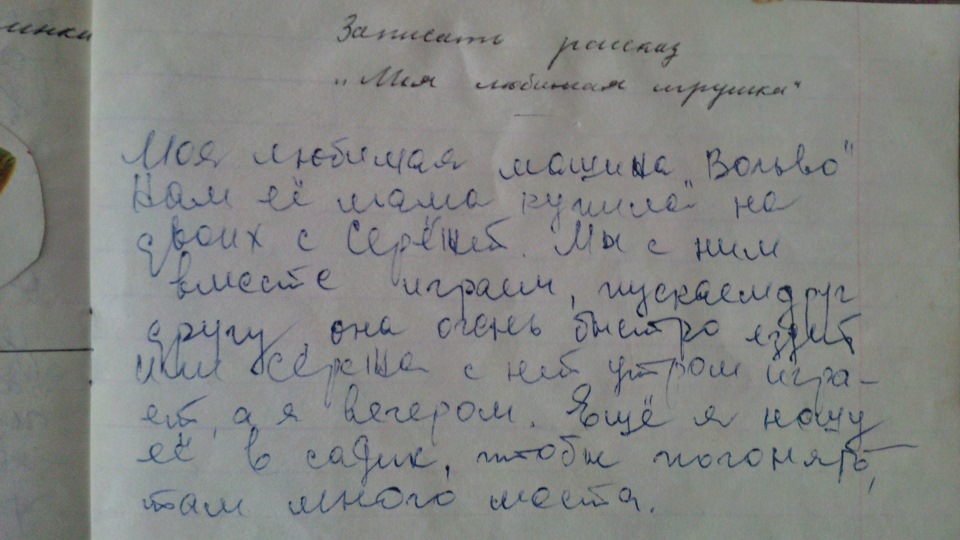 инки
Записать рассказ
„Моя любимая игрушка“
Моя любимая машина "Вольво"
Нам её мама купила на
двоих с Серёжей. Мы с ним
вместе играем, пускаем друг
другу, она очень быстро ездит
или Серёжа с ней утром игра-
ет, а я вечером. Ещё я ношу
её в садик, чтобы погонять,
там много места.